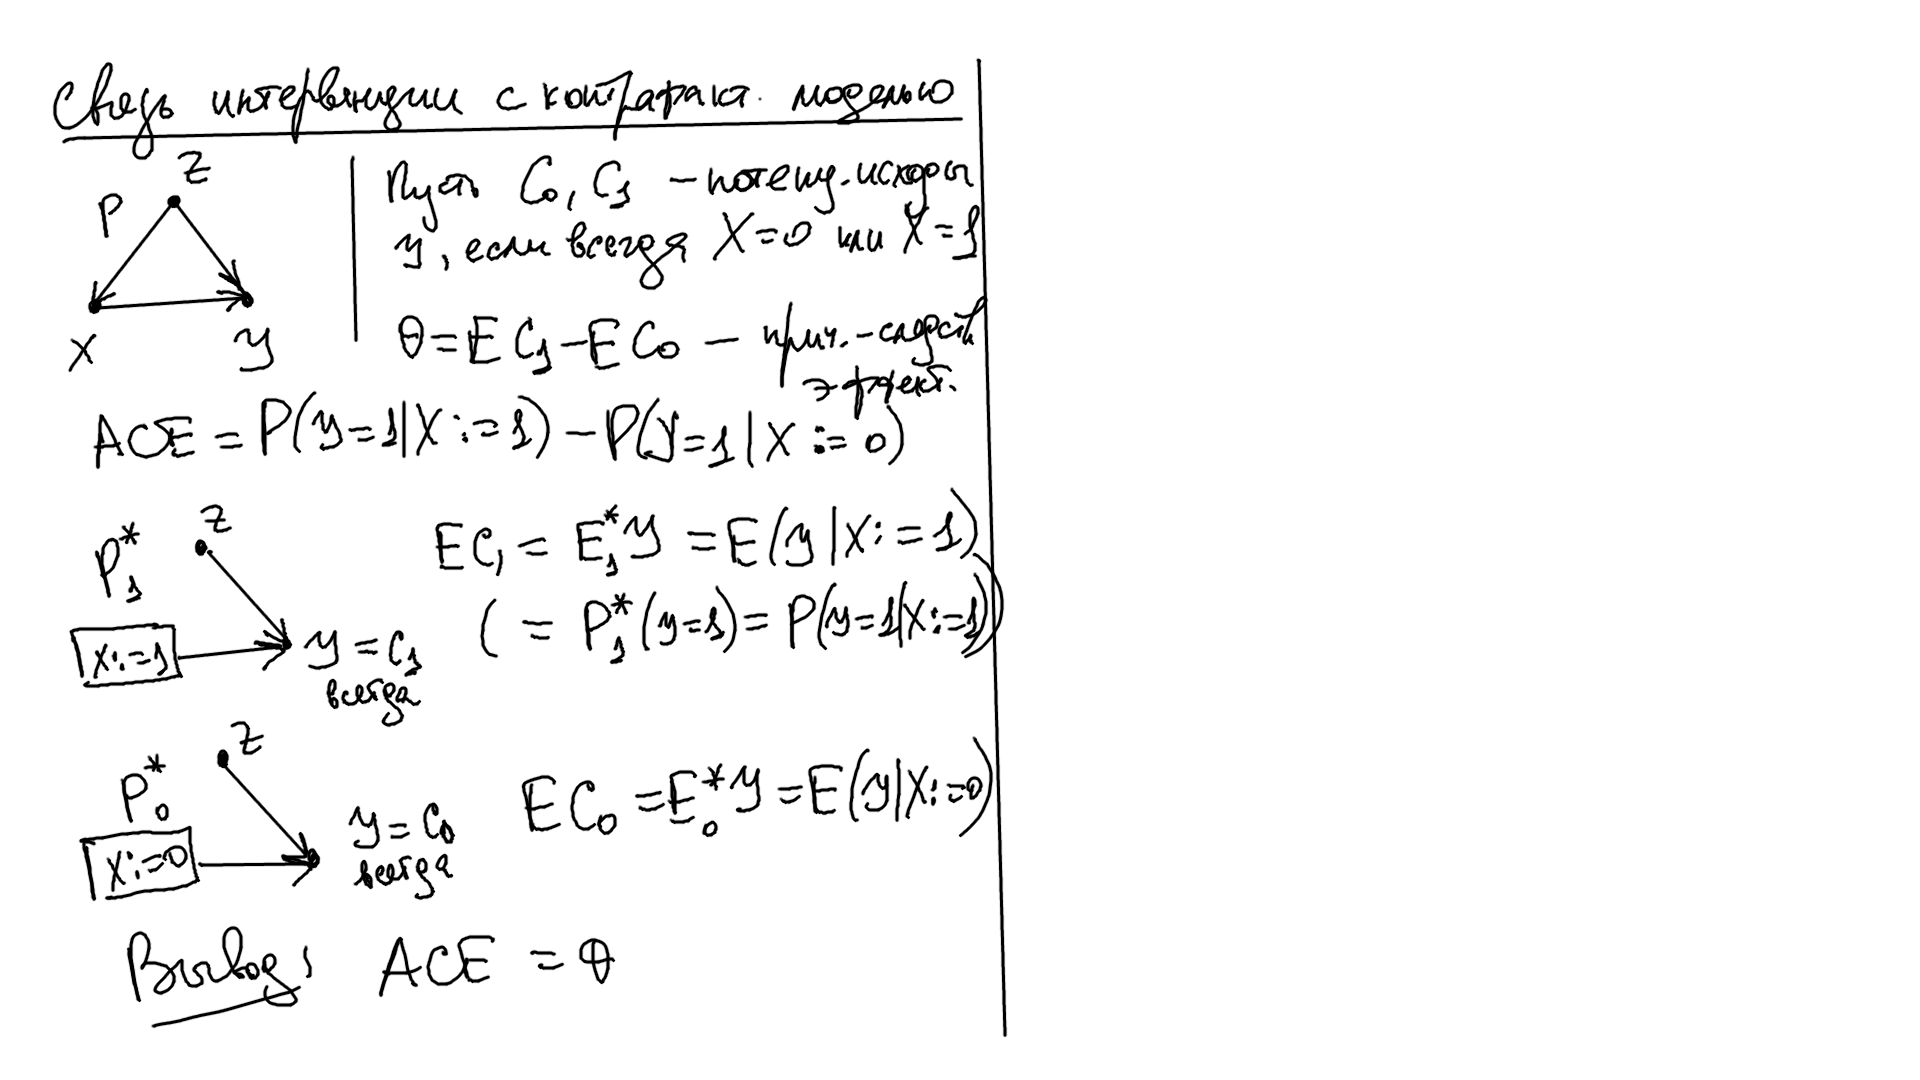 Связь интервенции с контрфакт. моделью
Z
P
X
y
Пусть C₀, C₁ – потенц. исходы
y, если всегда X=0 или X=1
θ = E C₁ – E C₀ – прич.-следств.
эффект.
ACE = P(y=1|X:=1) – P(y=1|X:=0)
Z
P₁*
X:=1
y = C₁
всегда
EC₁ = E₁*y = E(y|X:=1)
( = P₁*(y=1) = P(y=1|X:=1))
Z
P₀*
X:=0
y = C₀
всегда
EC₀ = E₀*y = E(y|X:=0)
Вывод: ACE = θ